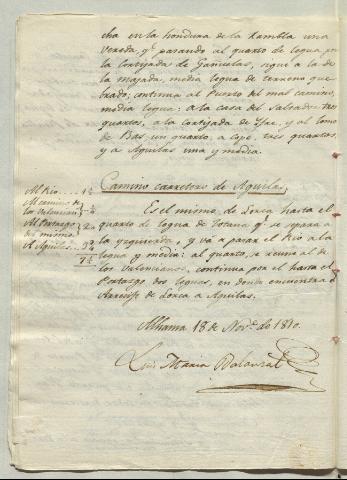 cha en la hondura de la Rambla una
vereda, q.e pasando al quarto de legua por
la Cortijada de Gañuelas, sigue a la de
la majada, media legua de terreno que
brado; continua al Punto del mal camino,
media legua: a la casa del Salvador tres
quartos, a la cortijada de Ifre, y al lomo
de Bas, un quarto, a Cope, tres quartos,
y a Aguilas una y media.
Camino carretero de Aguilas
Al Rio .... 1½
Al camino de
los Valencianos
Al Portazgo
del mismo
A Aguilas
Es el mismo de Lorca hasta el
quarto de legua de Totana q.e se separa a
la izquierda, y vá a pasar el Rio a la
legua y media: al quarto, se reune al de
los Valencianos, continua por el hasta el
Portazgo dos leguas, en donde encuentra el
Arrecife de Lorca a Aguilas.
Alhama 18 de Nov.e de 1810.
Luis Maria Balanzat